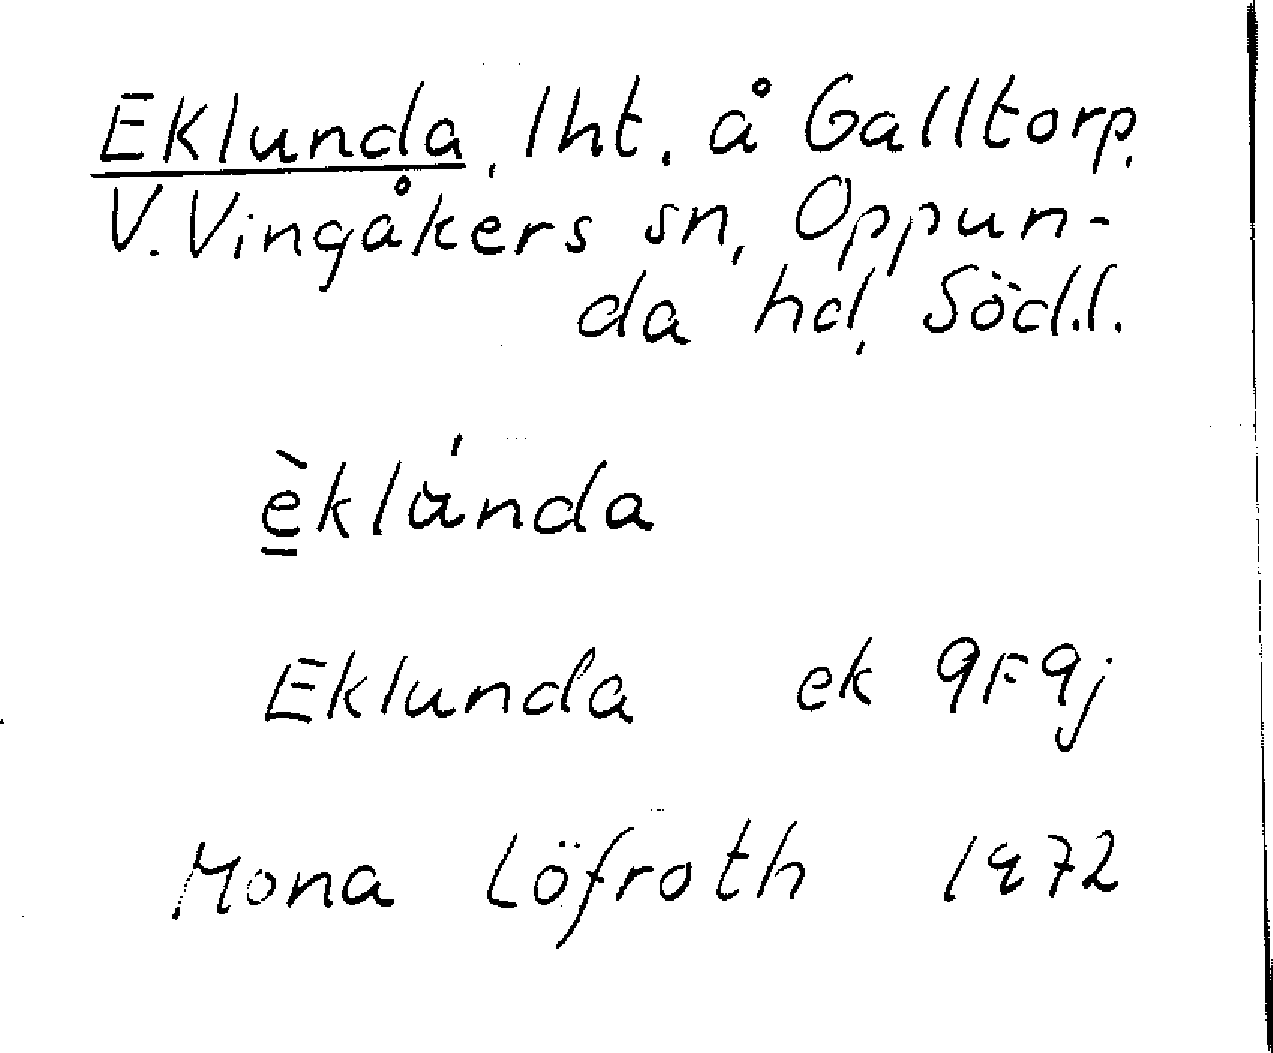 Eklunda, lht. å Galltorp,
V. Vingåkers sn, Oppun-
da hd, Södl.
è̲klúnda
Eklunda ek 9F9j
Mona Löfroth 1972